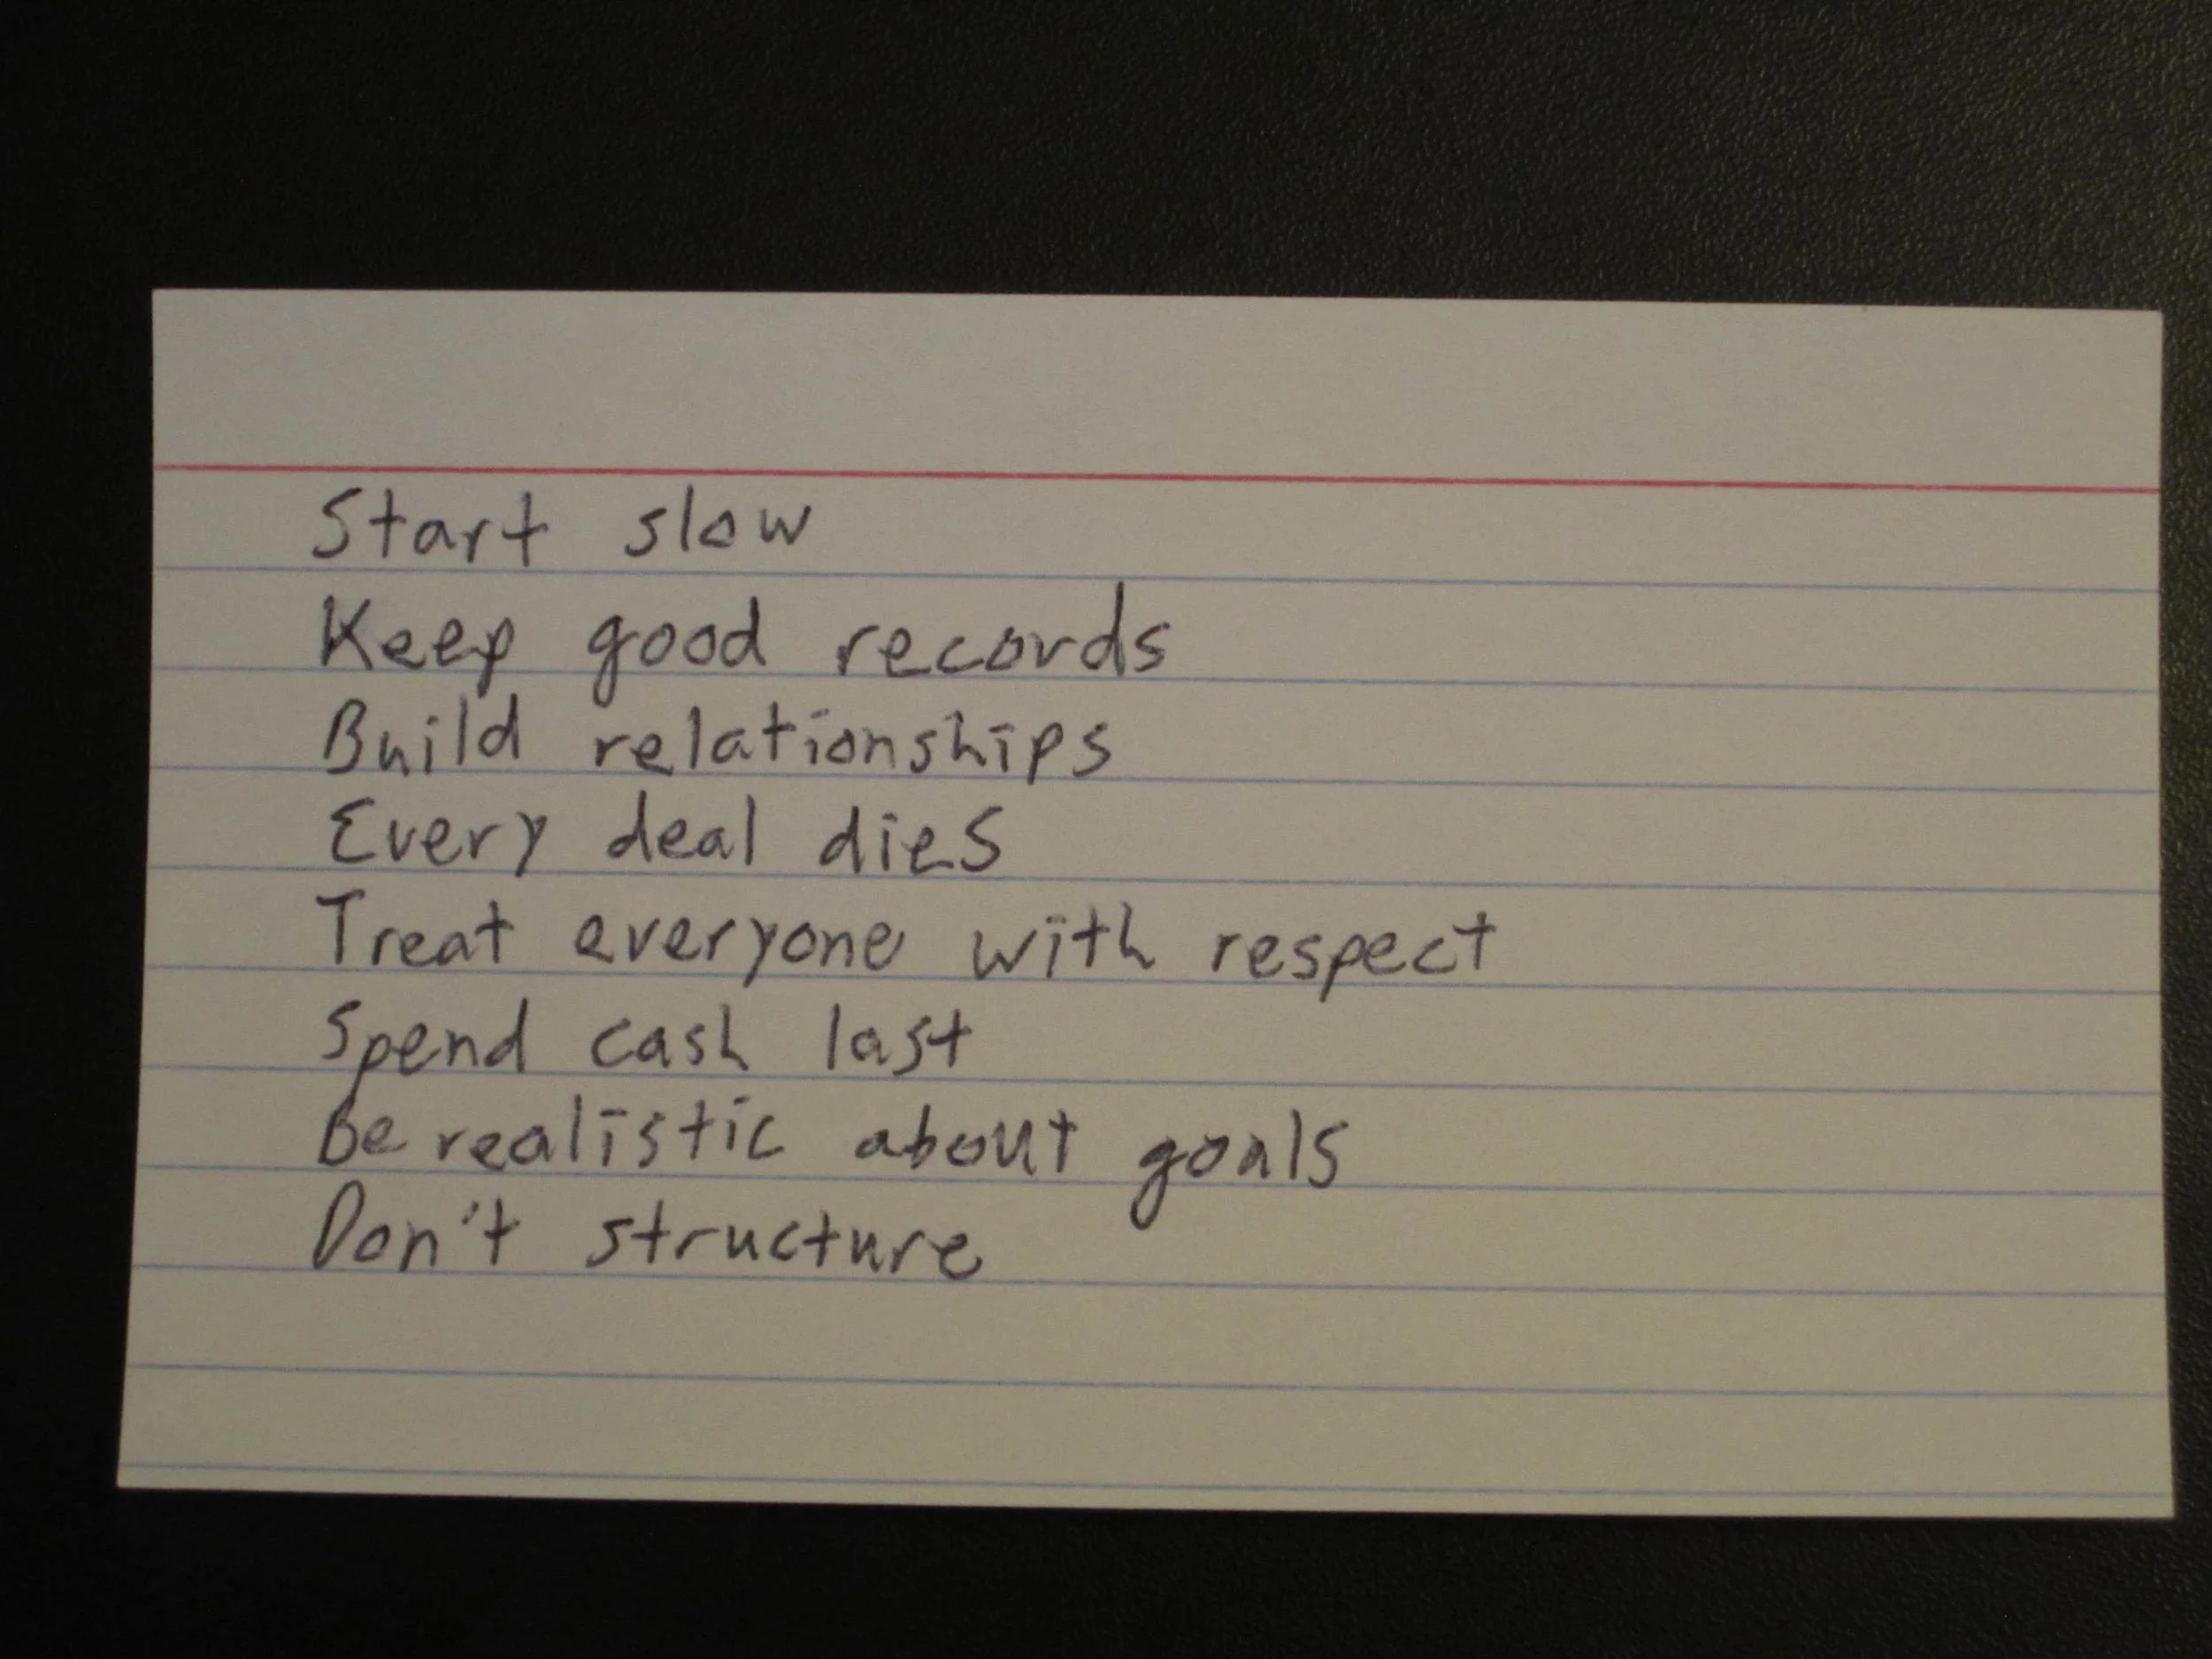 Start slow
Keep good records
Build relationships
Every deal dies
Treat everyone with respect
Spend cash last
Be realistic about goals
Don't structure